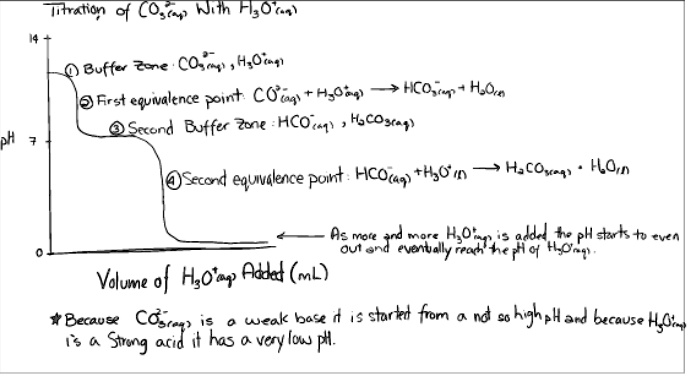 Titration of CO₃²⁻(aq) With H₃O⁺(aq)
14
① Buffer Zone: CO₃²⁻(aq), H₃O⁺(aq)
② First equivalence point: CO²⁻(aq) + H₃O⁺(aq) → HCO₃⁻(aq) + H₂O(l)
③ Second Buffer Zone: HCO⁻(aq), H₂CO₃(aq)
pH 7
④ Second equivalence point: HCO⁻(aq) + H₃O⁺(l) → H₂CO₃(aq) + H₂O(l)
As more and more H₃O⁺(aq) is added the pH starts to even
out and eventually reach the pH of H₃O⁺(aq).
0
Volume of H₃O⁺(aq) Added (mL)
* Because CO₃²⁻(aq) is a weak base it is started from a not so high pH and because H₃O⁺(aq)
is a Strong acid it has a very low pH.